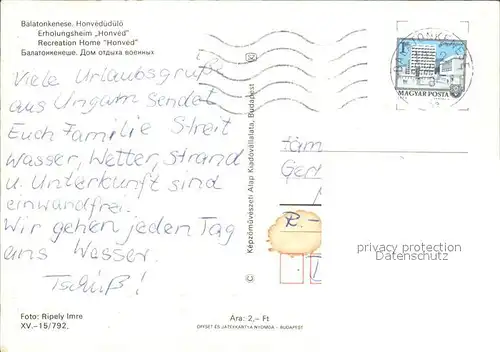 Balatonkenese. Honvédüdülő
Erholungsheim „Honvéd"
Recreation Home "Honved"
Балатонкенеше. Дом отдыха военных
Viele Urlaubsgrüße
aus Ungarn sendet
Euch Familie Streit
Wasser, Wetter, Strand
u. Unterkunft sind
einwandfrei.
Wir gehen jeden Tag
ans Wasser.
Tschüß!
Foto: Ripely Imre
XV.–15/792.
Ara: 2,– Ft
OFFSET ÉS JÁTÉKKÁRTYA NYOMDA – BUDAPEST
© Képzőművészeti Alap Kiadóvállalata, Budapest
MAGYAR POSTA
Fam
privacy protection
Datenschutz